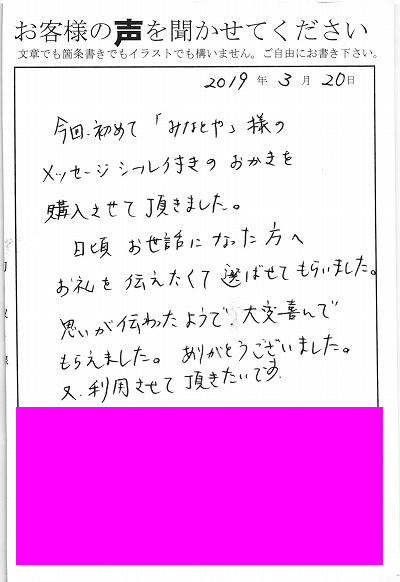 お客様の声を聞かせてください
文章でも箇条書きでもイラストでも構いません。ご自由にお書き下さい。
2019年 3月 20日
今回、初めて「みなとや」様の
メッセージシール付きの おかきを
購入させて頂きました。
日頃 お世話になった方へ
お礼を伝えたくて選ばせてもらいました。
思いが伝わったようで、大変喜んで
もらえました。ありがとうございました。
又、利用させて頂きたいです。